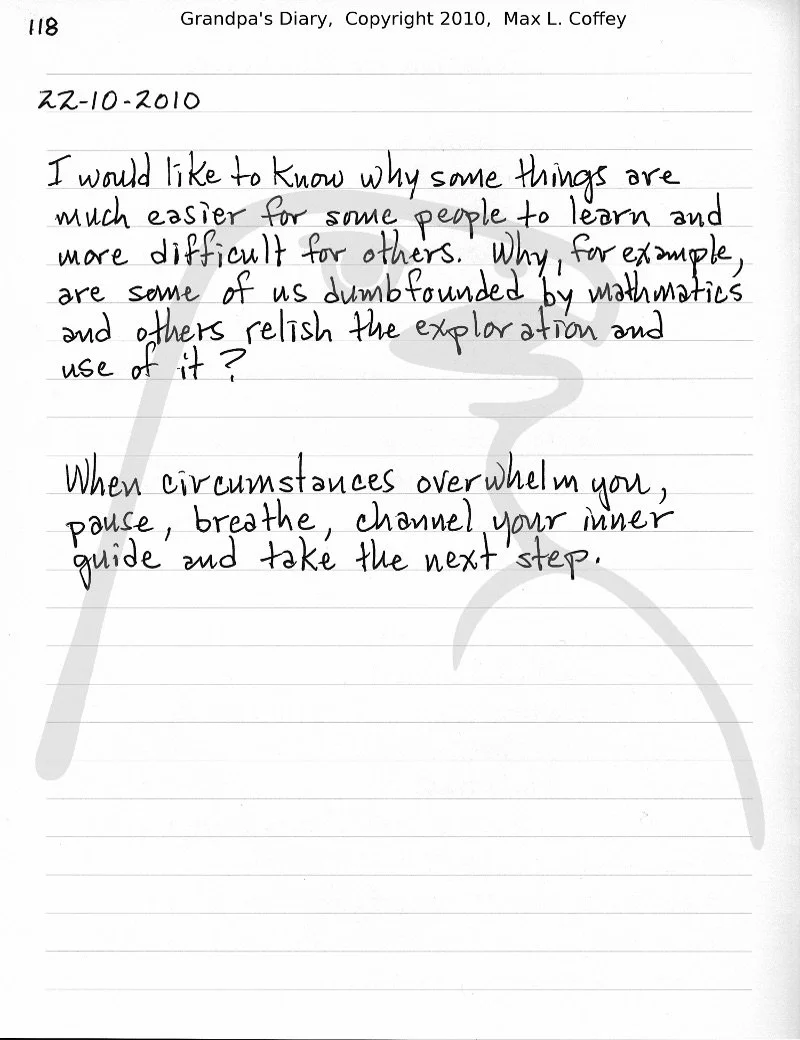 118
Grandpa's Diary, Copyright 2010, Max L. Coffey
22-10-2010
I would like to know why some things are
much easier for some people to learn and
more difficult for others. Why, for example,
are some of us dumbfounded by mathmatics
and others relish the exploration and
use of it?
When circumstances overwhelm you,
pause, breathe, channel your inner
guide and take the next step.